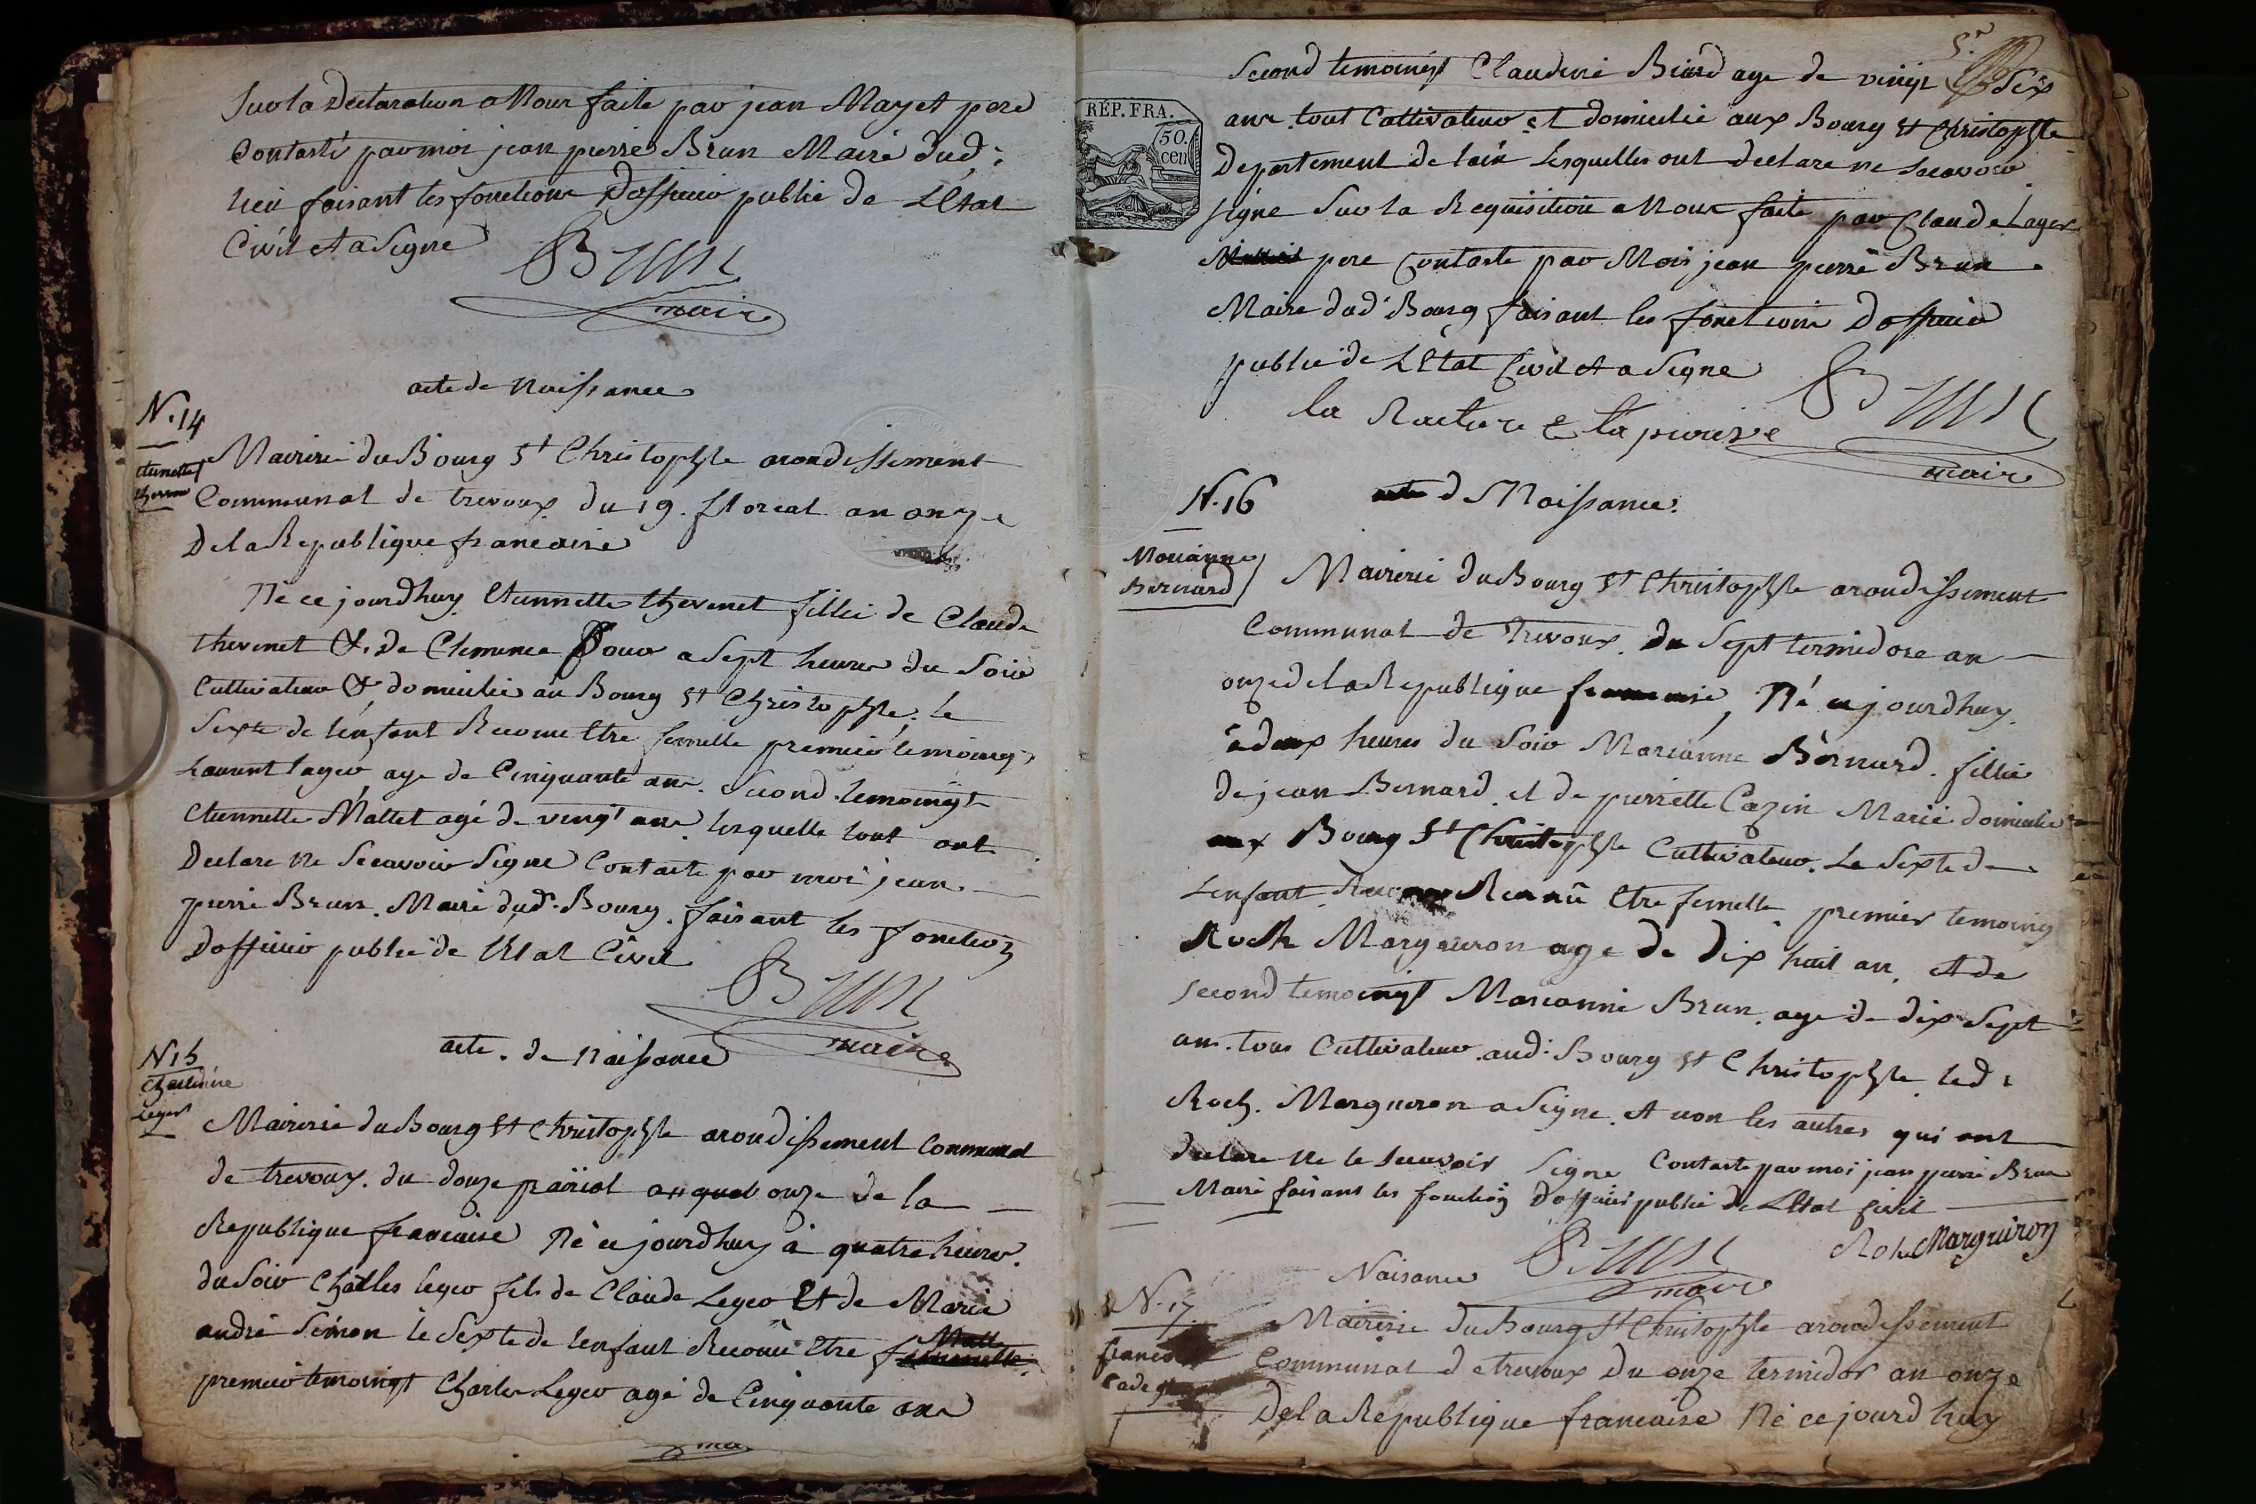 Sur la Declaration a Nour faite par jean Mayet pere
Contasté par moi jean pierre Brun Maire dud:
lieu faisant les fonctions Dofficier public de LEtat
Civil et a Signé
Brun
maire
acte de Naissance
N. 14
etiennette
thevenet
Mairerie du Bourg St Christophle arondissement
Communal de trevoux du 19. floreal an onze
De la Republique francaise
Né ce jourdhuy Etiennette thevenet fillie de Claude
thevenet & de Clemence a Sept heures du Soir
Cultivateur & domicilié au Bourg St Christophle. le
Sexte de lenfant Reconu Etre femelle premier temoing
Laurent lager age de Cinquante ans. Second temoingt
Etiennette Mallet agé de vingt ans lesquelle tout ont
Declare Ne Scavoir Signe Contasté par moi jean
pierre Brun. Maire dud. Bourg. faisant les fonction
Dofficier public de lEtat Civil
Brun
maire
N 15
Leger
acte. de Naissance
Mairerie du Bourg St Christophle arondissement Communal
de trevoux. du douze onze de la
Republique francaise Né ce jourdhuy à quatre heures
du Soir Charles leger fils de Claude Leger Et de Marie
andré Simon le Sexte de lenfant Reconu Etre Malle
premier temoingt Charles Leger agé de Cinquante ans
5.
Second temoingt Claudine age de vingt Six
ans tout Cultivateur et domicilié aux Bourg St Christophle
RÉP. FRA.
50.
cen
Departement de lain Lesquelles ont declare ne Scavoir
Signe Sur la Requisition a Nour faite par Claude Lager
pere Contasté par Moi jean pierre Brun
Maire dud. Bourg faisant les fonctions Dofficier
public de LEtat Civil et a Signe
Brun
la Racture &
maire
N. 16
acte de Naissance.
Marianne
Bernard
Mairerie du Bourg St Christophle arondissement
Communal de trevoux. du Sept termidore an
onze de la Republique francaise, Né ce jourdhuy
à deux heures du Soir Marianne Bernard. fillie
de jean Bernard et de pierrette Cazin Marié domicilie
aux Bourg St Christophle Cultivateur. Le Sexte de
Lenfant Reconnû Etre femelle premier temoing
Roch Marguiron age de Dix huit an, Et de
Second temoingt Marianne Brun. age de dix Sept
ans. tous Cultivateur aud: Bourg St Christophle led:
Roch. Marguiron a Signe. Et non les autres qui ont
declare Ne le Scavoir Signe Contasté par moi jean pierre Brun
Maire faisant les fonction Dofficier public de LEtat Civil
Roch Marguiron
Brun
maire
Naisance
N. 17
Mairerie du Bourg St Christophle arondissement
Communal de trevoux Du onze termidor an onze
De la Republique francaise Né ce jourdhuy